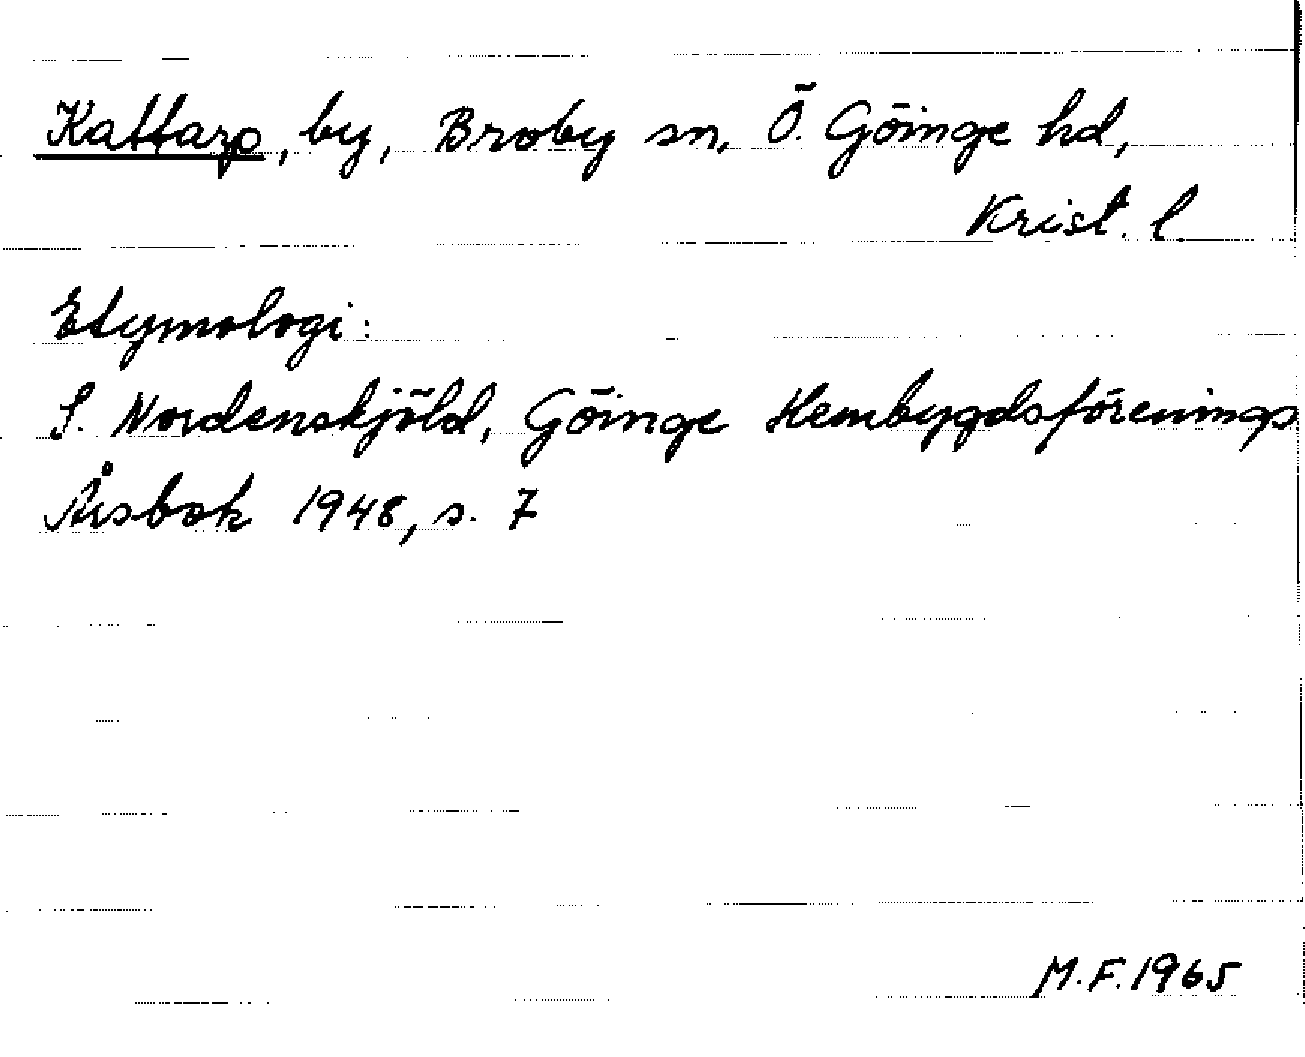 Kattarp, by, Broby sn, Ö. Göinge hd,
Krist. l.
Etymologi:
S. Nordenskjöld, Göinge Hembygdsförenings
Årsbok 1948, s. 7
M.F. 1965